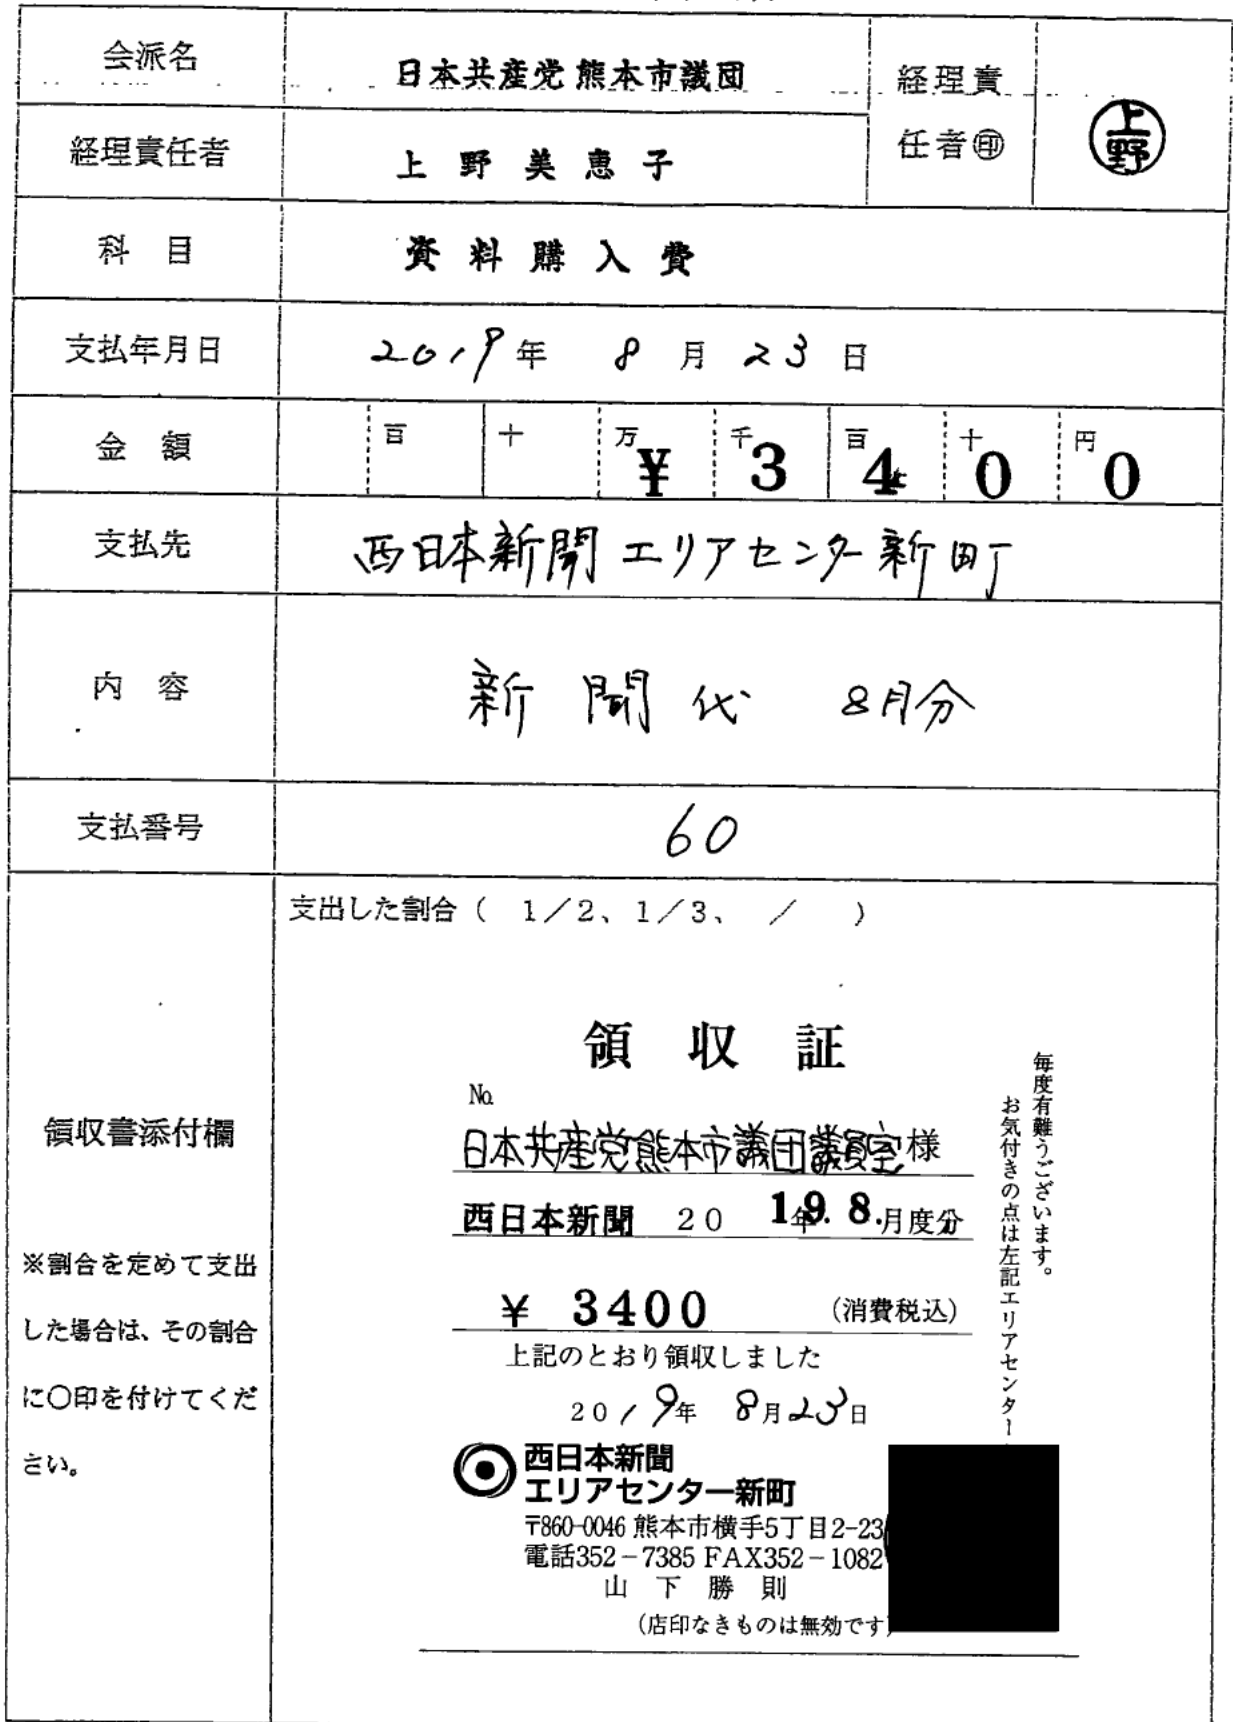 会派名 日本共産党 熊本市議団 経理責任者㊞ 上野
経理責任者 上野美恵子
科目 資料購入費
支払年月日 2019年 8月23日
金額 百 十 万¥ 千3 百4 十0 円0
支払先 西日本新聞エリアセンター新町
内容 新聞代 8月分
支払番号 60
領収書添付欄
※割合を定めて支出
した場合は、その割合
に〇印を付けてくだ
さい。
支出した割合( 1/2、1/3、 / )
領収証
No.
日本共産党熊本市議団議員室様
西日本新聞 2019年. 8.月度分
¥ 3400 (消費税込)
上記のとおり領収しました
2019年 8月23日
西日本新聞
エリアセンター新町
〒860-0046 熊本市横手5丁目2-23
電話352-7385 FAX352-1082
山下勝則
(店印なきものは無効です)
毎度有難うございます。
お気付きの点は左記エリアセンター